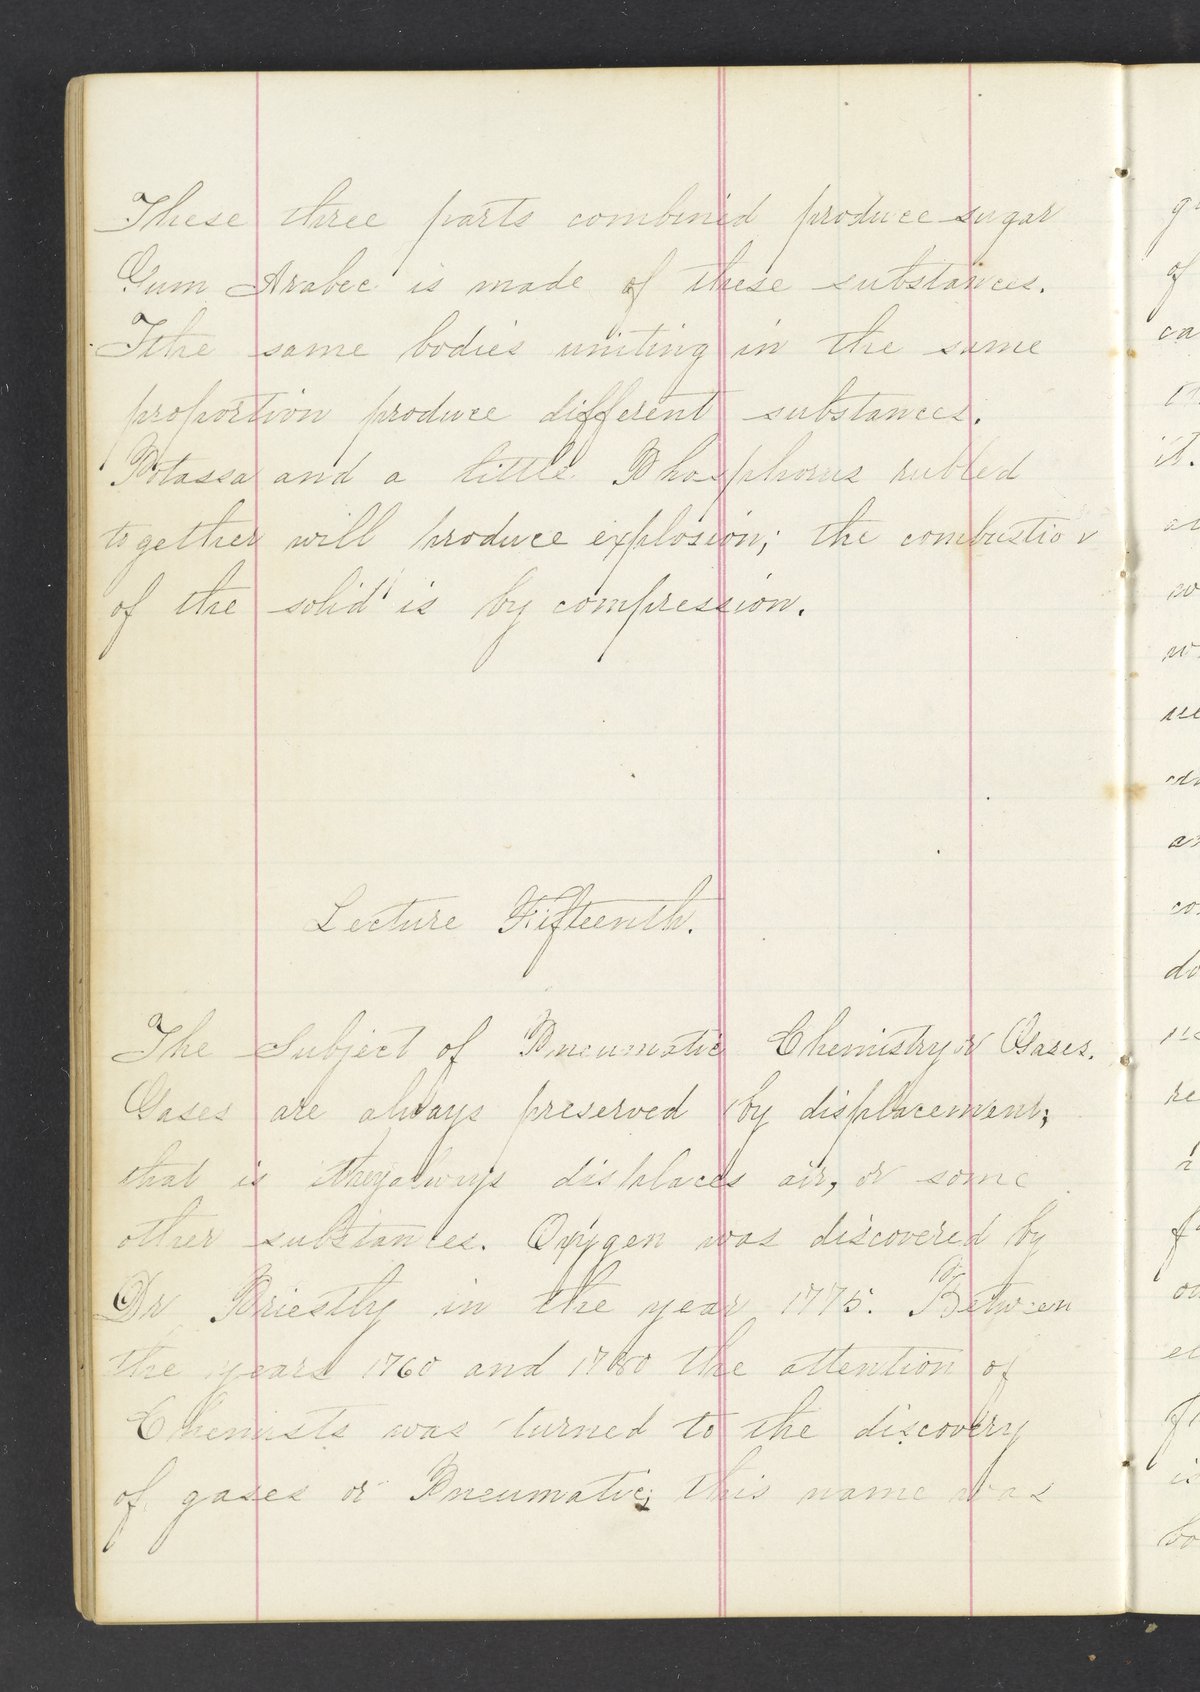 These three parts combined produce sugar
Gum Arabec is made of these substances.
Ithe same bodies uniting in the same
proportion produce different substances.
Potassa and a little Phosphorus rubled
together will produce explosion; the combustion
of the solid is by compression.
Lecture Fifteenth.
The Subject of Pneumatic Chemistry or Gases.
Gases are always preserved by displacement;
that is they always displaces air, or some
other substances. Oxygen was discovered by
Dr Priestly in the year 1775. Between
the years 1760 and 1780 the attention of
Chemists was turned to the discovery
of gases or Pneumatic; this name was